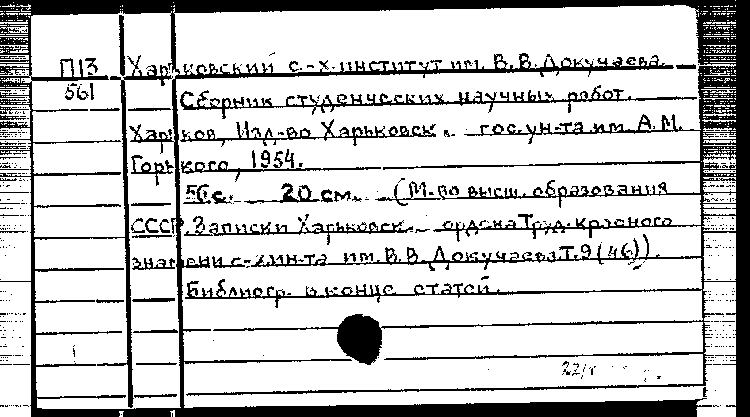 П13 Харьковский с.-х. институт им. В.В. Докучаева.
561 Сборник студенческих научных работ.
Харьков, Изд-во Харьковск. гос. ун-та им. А.М.
Горького, 1954.
56 с. 20 см. (М-во высш. образования
СССР. Записки Харьковск. ордена Труд. красного
знамени с-х. ин-та им. В.В. Докучаева. Т. 9 (46)).
Библиогр. в конце статей.